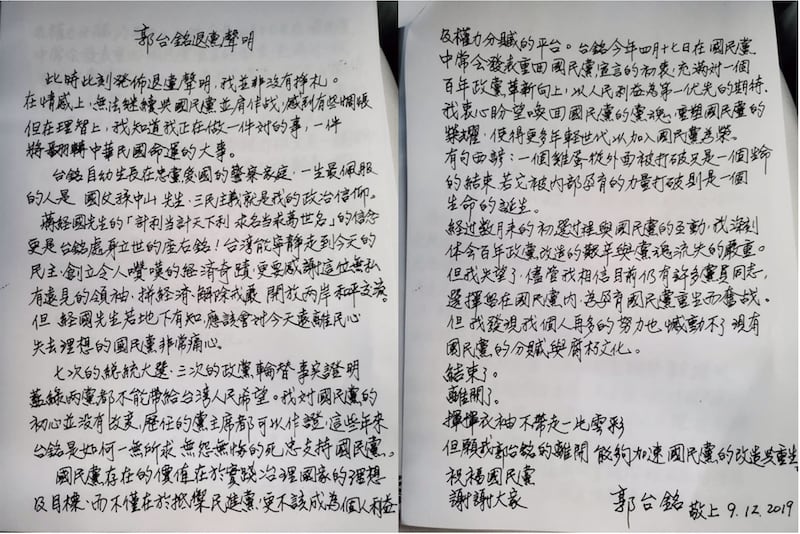 郭台銘退黨聲明
此時此刻發佈退黨聲明，我並非沒有掙扎。
在情感上，無法繼續與國民黨並肩作戰，感到有些惆悵
但在理智上，我知道我正在做一件对的事，一件
將翻轉中華民國命運的大事。
台銘自幼生長在忠黨愛國的警察家庭，一生最佩服
的人是 國父孫中山先生，三民主義就是我的政治信仰。
蔣經國先生的「計利当計天下利 求名当求萬世名」的信念
更是台銘處身立世的座右銘！台灣能寧靜走到今天的
民主，創立令人嘆的經濟奇蹟，更要感謝這位無私
有遠見的領袖，拼經濟，解除戒嚴 開放兩岸和平交流。
但 經國先生若地下有知，應該會对今天遠離民心
失去理想的國民黨非常痛心。
七次的總統大選，三次的政黨輪替事实證明
藍綠兩黨都不能帶給台湾人民希望。我对國民黨的
初心並沒有改变，歷任的黨主席都可以作證，這些年來
台銘是如何一無所求 無怨無悔的死忠支持國民黨。
國民黨存在的價值在於實踐治理國家的理想
及目標，而不僅在於抵禦民進黨，更不該成為個人利益
及權力分贓的平台。台銘今年四月十七日在國民黨
中常会發表重回國民黨宣言的初衷，充滿对一個
百年政黨，革新向上，以人民利益為第一优先的期待。
我衷心盼望喚回國民黨的黨魂，重塑國民黨的
榮耀，使得更多年輕世代以加入國民黨為榮。
有句西諺：一個雞蛋從外面被打破只是一個生命
的結束 若它被內部孕育的力量打破則是一個
生命的誕生。
經过数月來的初選过程與國民黨的互動，我深刻
体会百年政黨改造的艱辛與黨魂流失的嚴重。
但我失望了，儘管我相信目前仍有許多黨員同志，
選擇留在國民黨內，為孕育國民黨重生而奮战。
但我發現我個人再多的努力也撼動不了現有
國民黨的分贓與腐朽文化。
結束了。
離開了。
揮揮衣袖不帶走一地雲彩
但願我郭台銘的離開 能夠加速國民黨的改造與重生
祝福國民黨
謝謝大家
郭台銘 敬上 9.12.2019